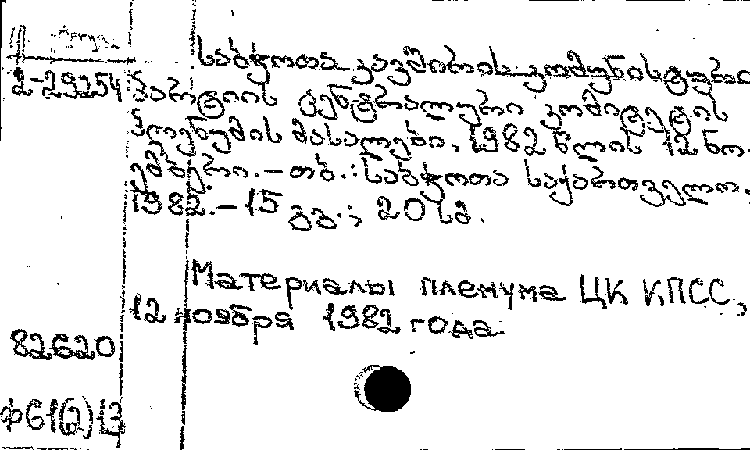 საბჭოთა კავშირის კომუნისტური
2-29254 პარტიის ცენტრალური კომიტეტის
პლენუმის მასალები, 1982 წლის 12 ნო-
ემბერი.-თბ.: საბჭოთა საქართველო,
1982.-15 გვ.; 20 სმ.
Материалы пленума ЦК КПСС,
12 ноября 1982 года.
82620
ф61(2)13